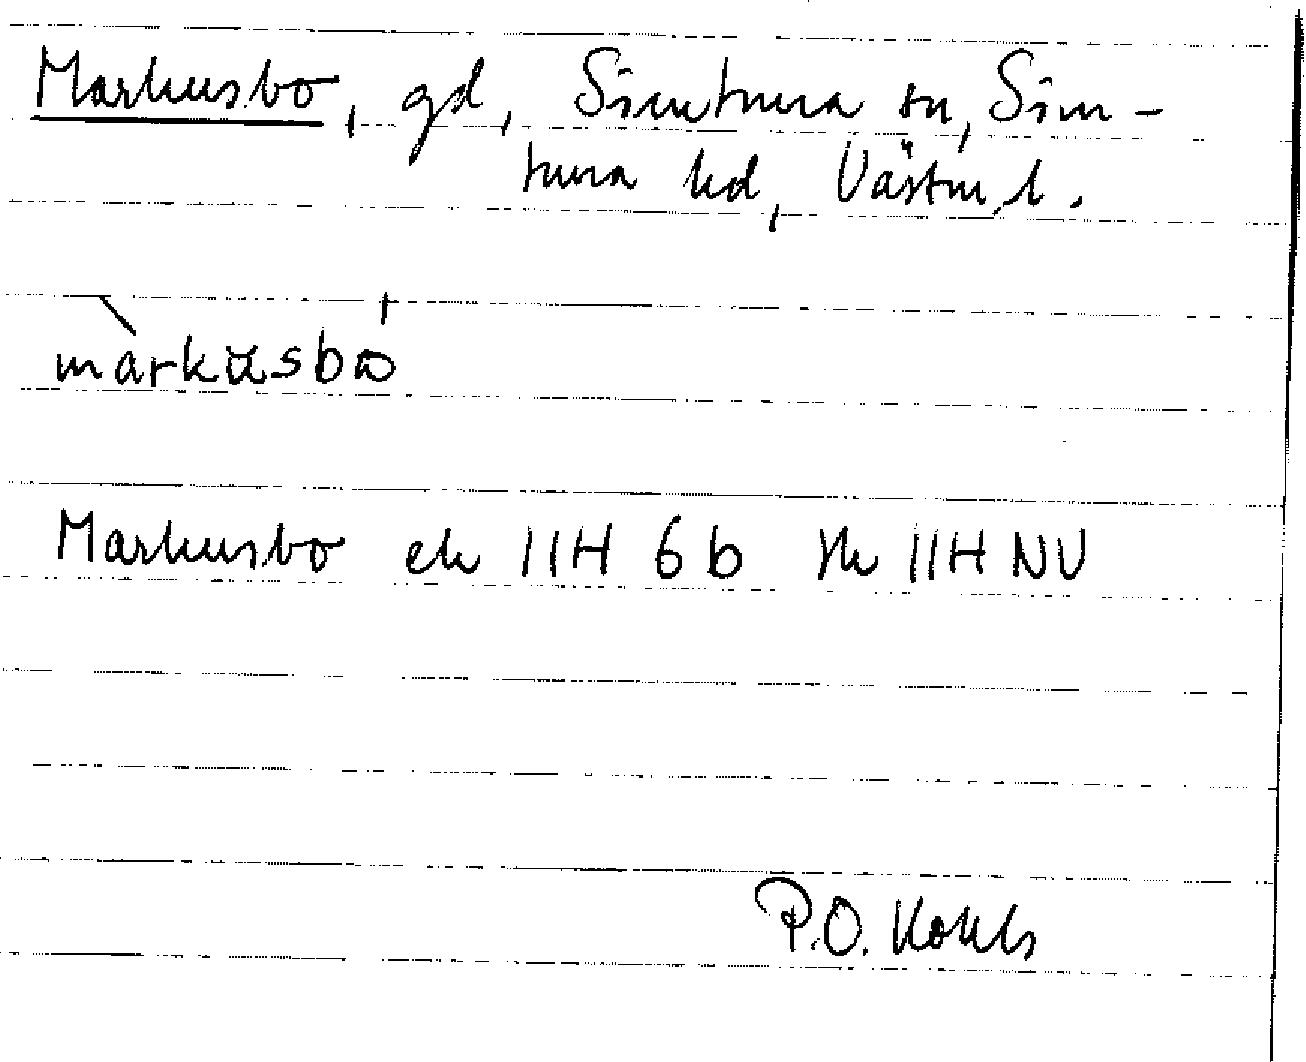 Markusbo, gd, Simtuna sn, Sim-
tuna hd, Västm.l.
markusbo
Markusbo ek 11H 6b tk 11H NV
P.O.